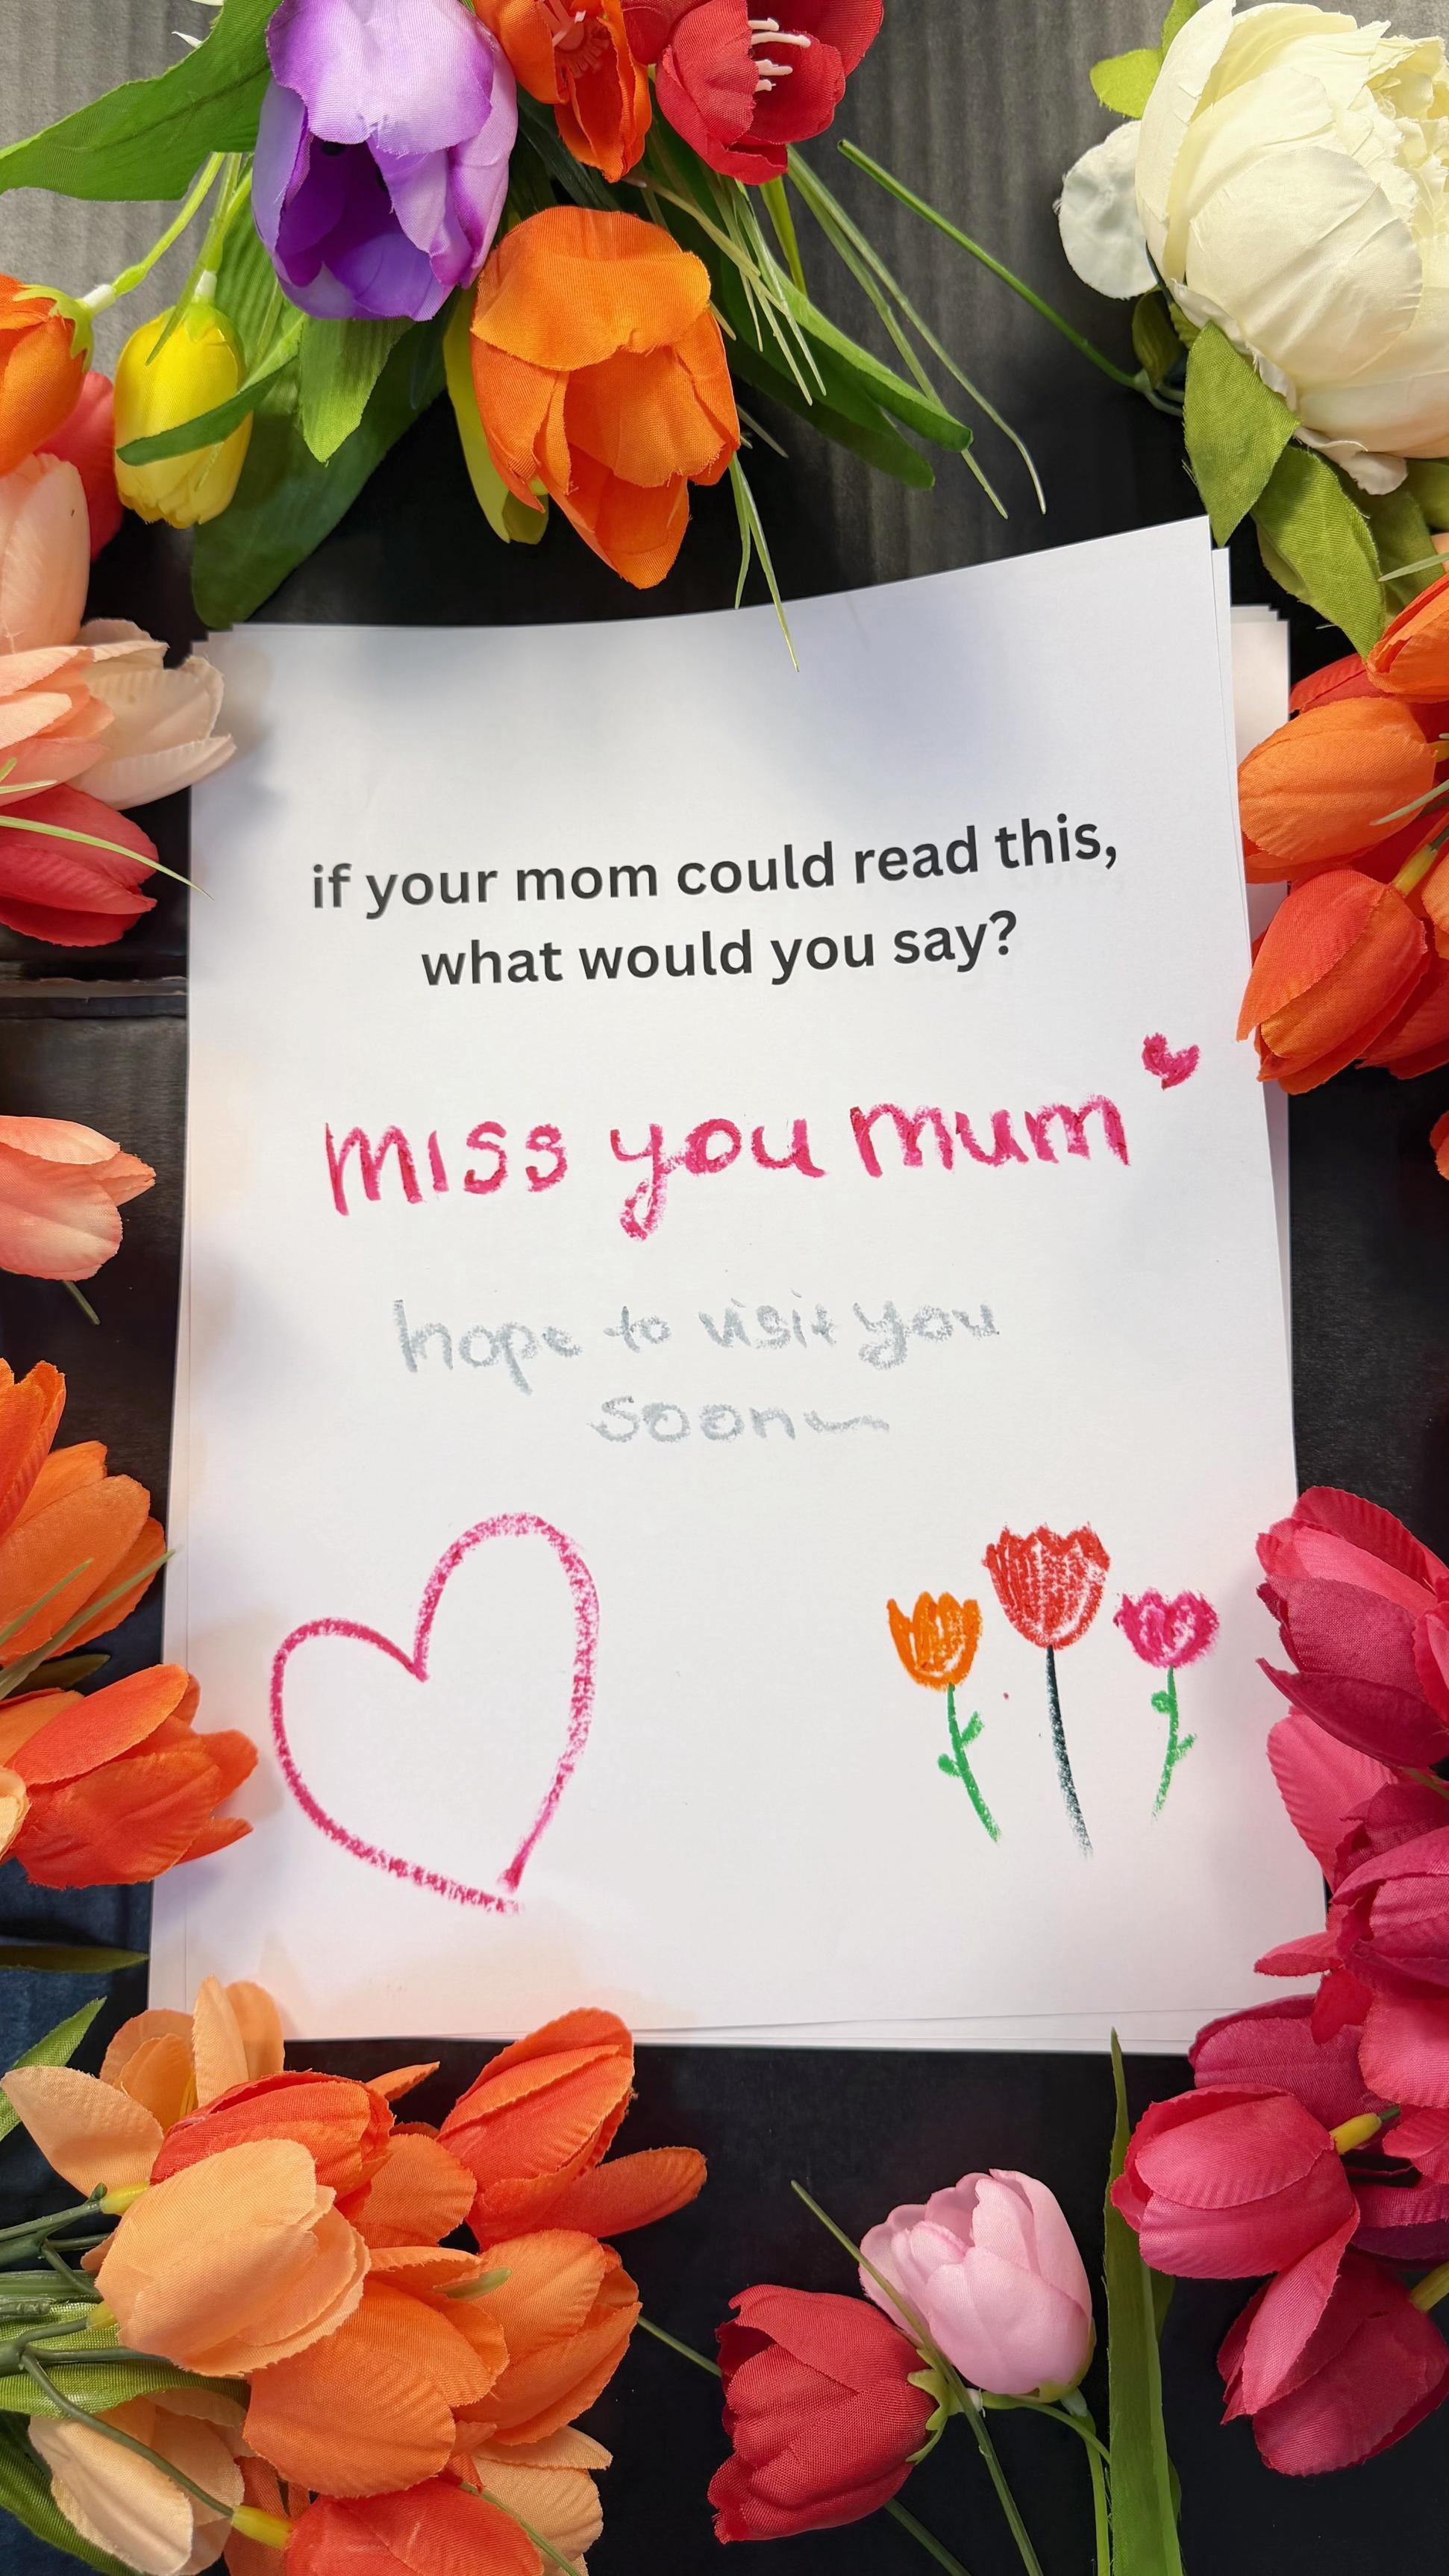 if your mom could read this,
what would you say?
miss you mum
hope to visit you
soon